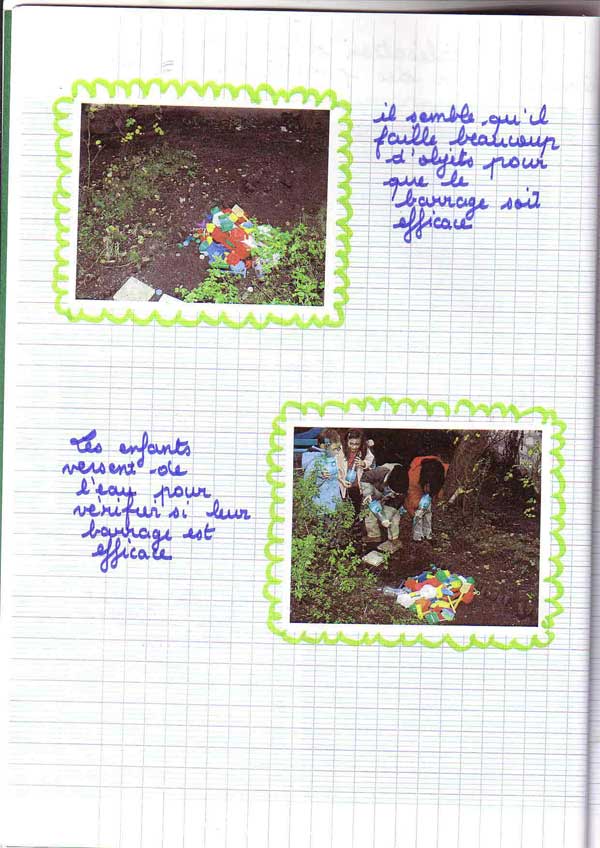 il semble qu'il
faille beaucoup
d'objets pour
que le
barrage soit
efficace
Les enfants
versent de
l'eau pour
vérifier si leur
barrage est
efficace